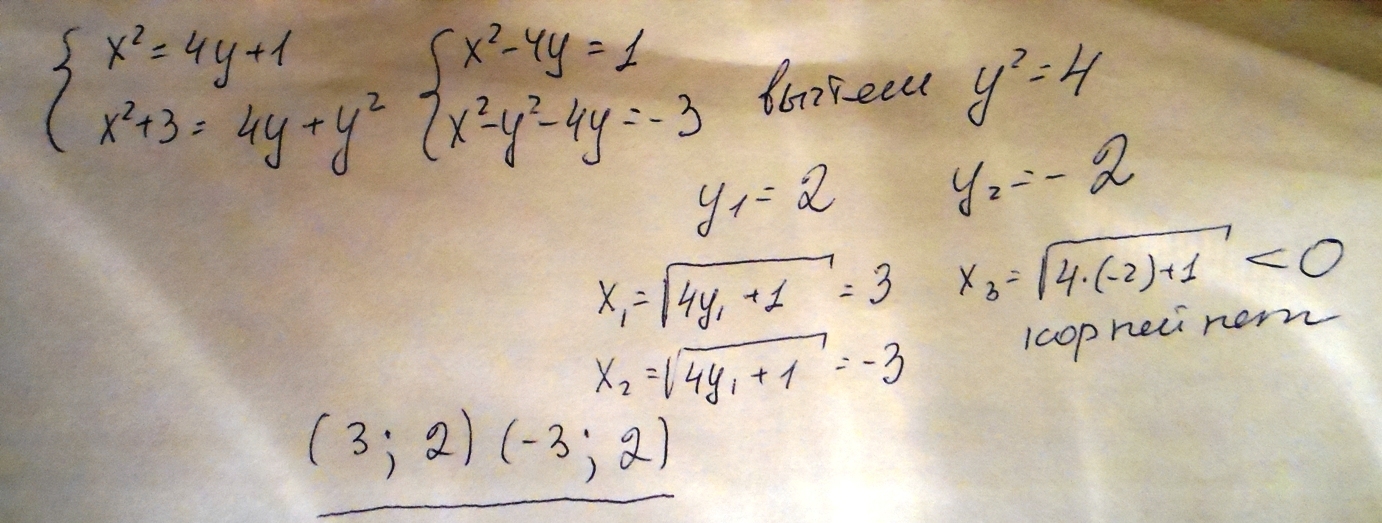 { x²=4y+1 { x²-4y=1
x²+3= 4y+y² x²-y²-4y=-3 вычтем y²=4
y₁=2 y₂=-2
x₁=√4y₁+1 =3 x₃=√4·(-2)+1 <0
корней нет
x₂=√4y₁+1 =-3
(3; 2) (-3; 2)